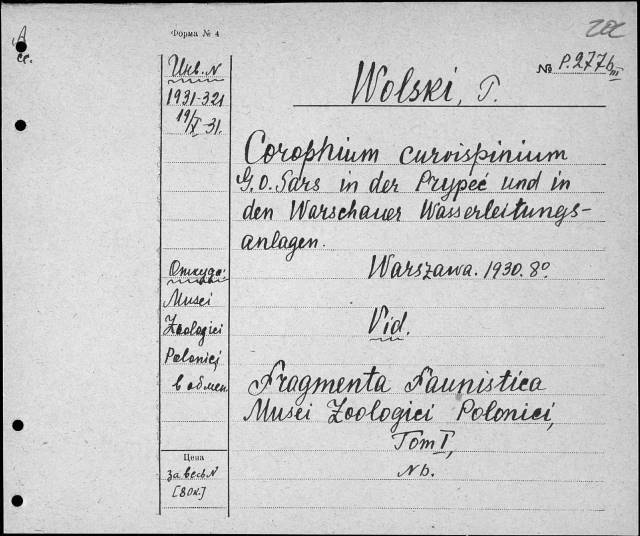 Форма № 4
Инв. N
1931-321
19/X-31.
№ P.277b III
Wolski, T.
Corophium curvispinium
G.O. Sars in der Prypeć und in
den Warschauer Wasserleitungs-
anlagen.
Warszawa. 1930. 8º
Откуда:
Musei
Zoologici
Polonici
в обмен
Vid.
Fragmenta Faunistica
Musei Zoologici Polonici,
Tom I,
Nb.
Цена
за весь N
[80к.]